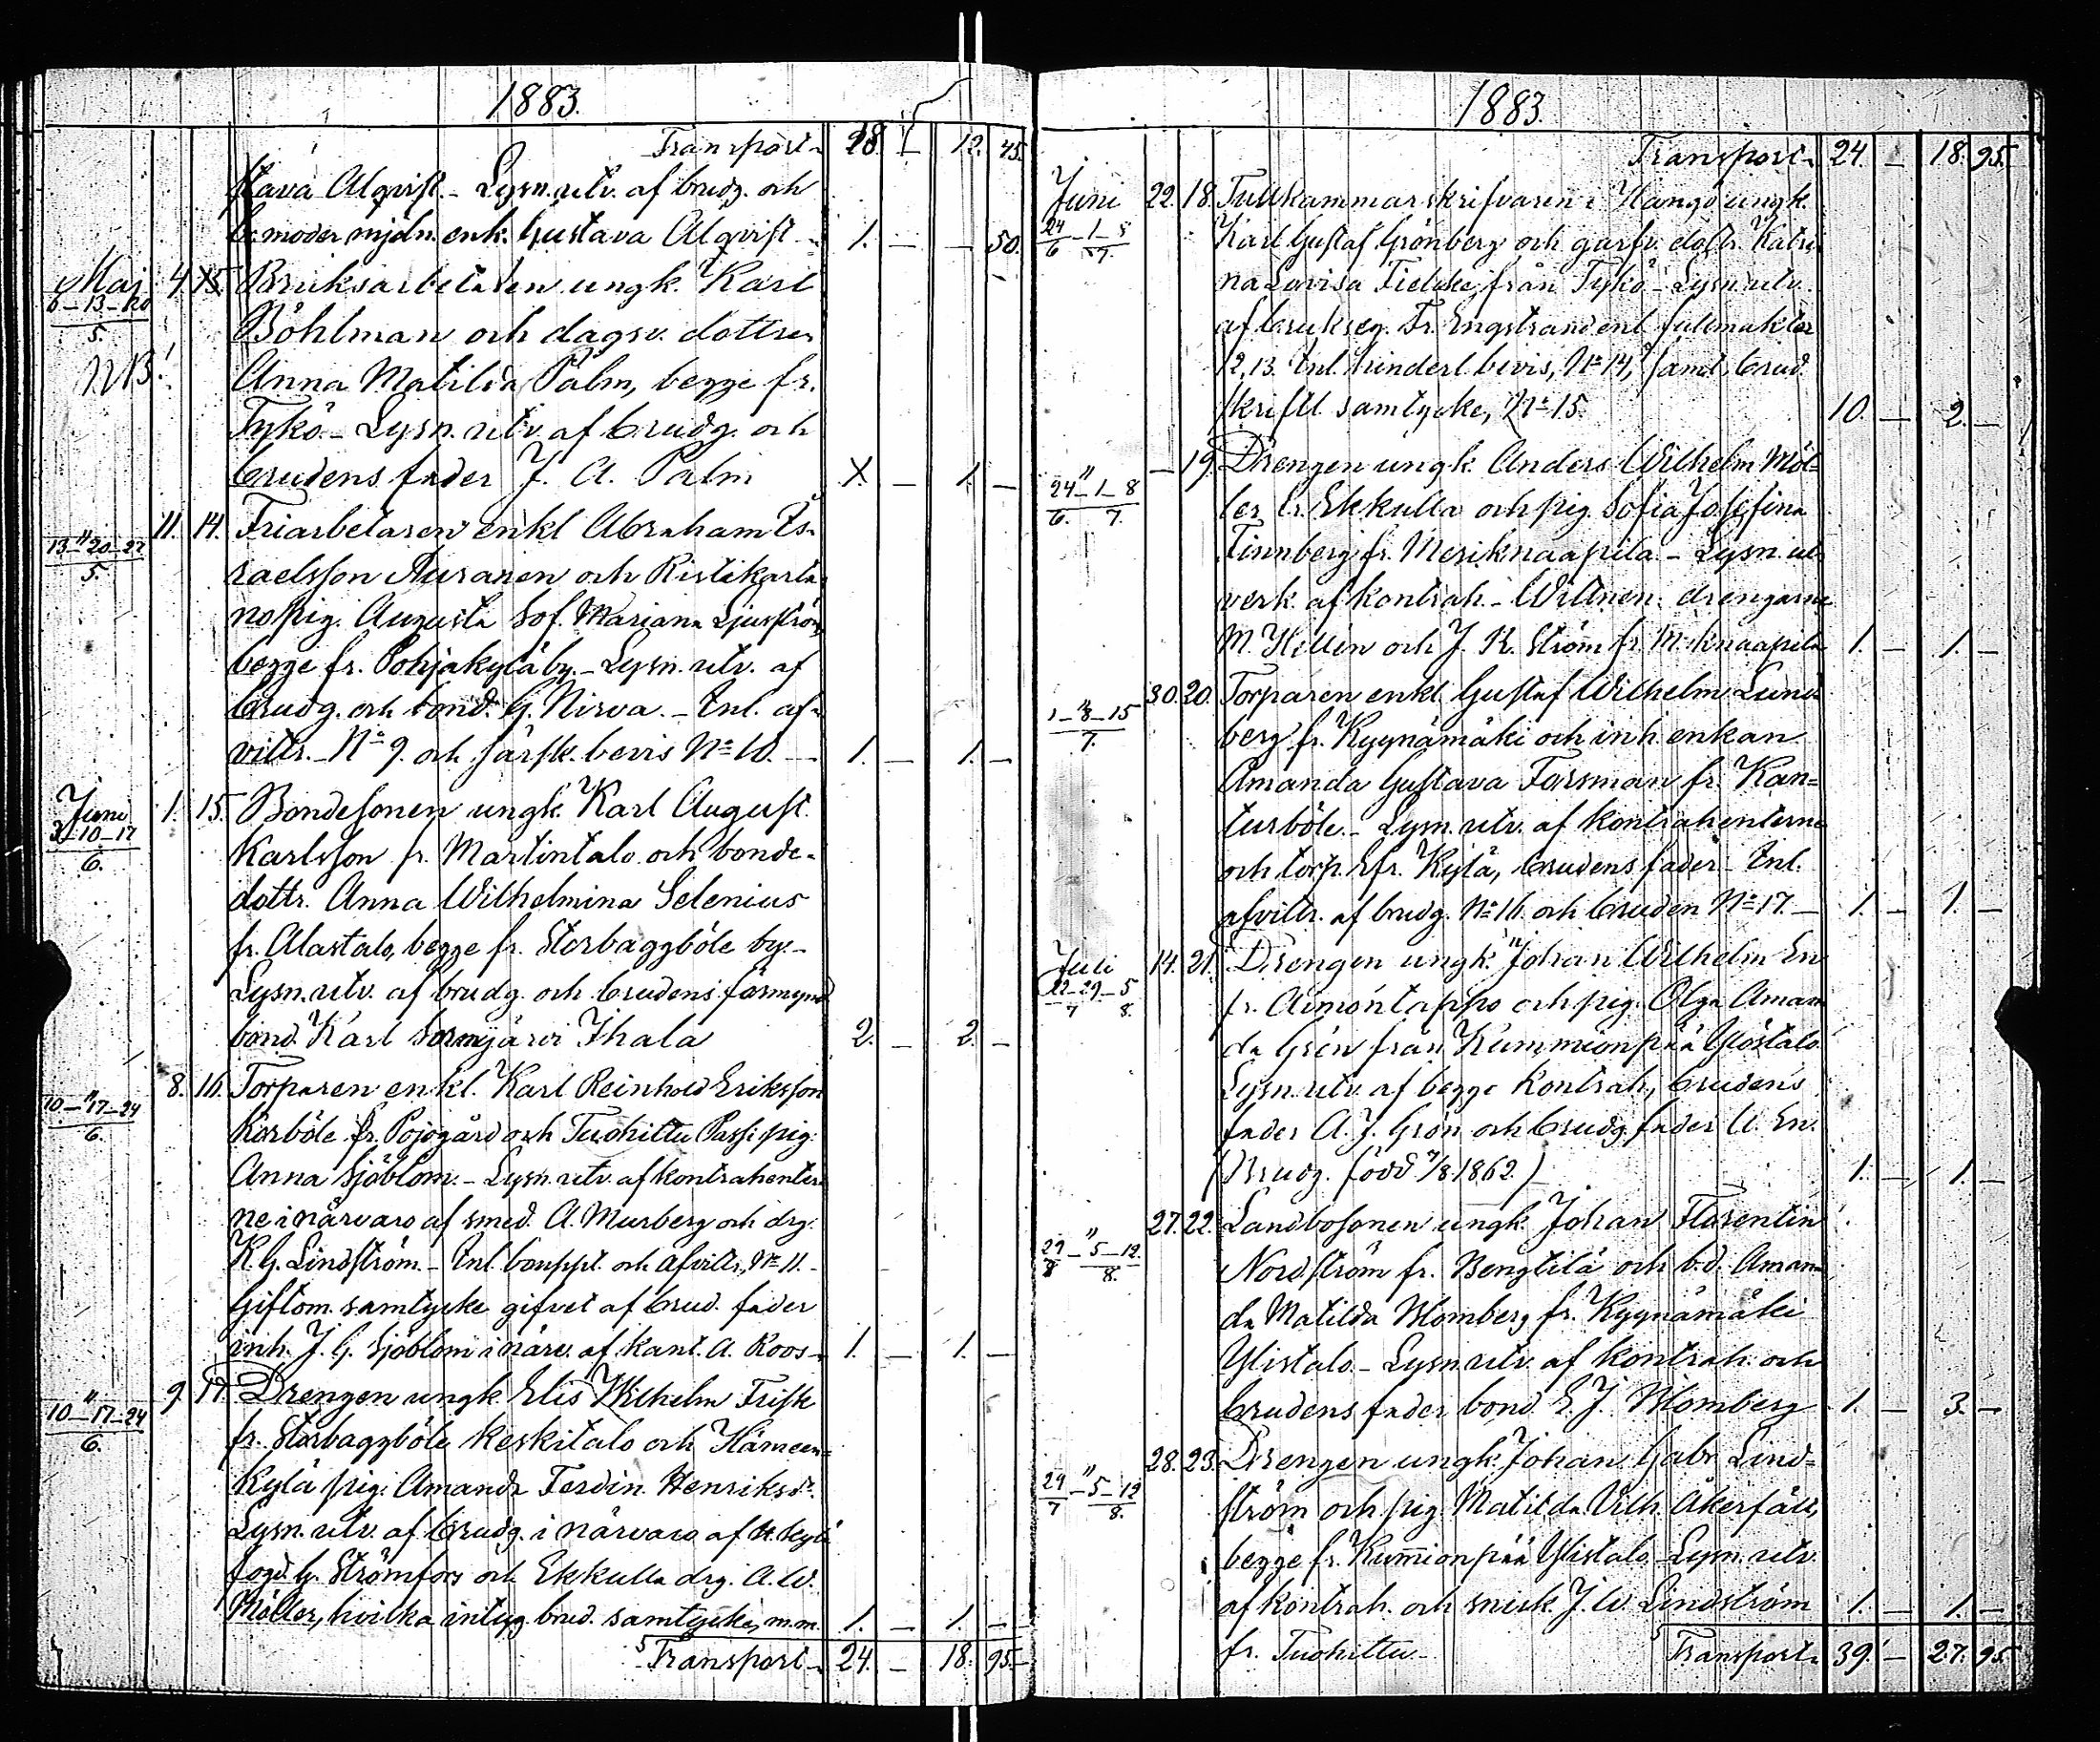 1883.
Transport 28. 12. 45.
stava Alqvist. - Lysn. utv. af brudg. och
b. moder mjöln. enk. Gustava Alqvist - 1. — — 50.
Maj 4. 15. Bruksarbetaren ungk. Karl
6-13-20
5.
Böhlman och dagsv. dottren
NB!
Anna Matilda Palm, begge fr.
Tykö - Lysn. utv. af brudg. och
brudens fader J. A. Palm X. — 1. —
" 11. 14. Friarbetaren enkl Abraham Is-
13-20-27
5.
raelsson Auranen och Ristikarta-
no pig. Augusta Sof. Mariana Ljusström,
begge fr. Pohjakylä by. - Lysn. utv. af
brudg. och bond. G. Nirva. - Inl. af-
vittr. - No 9. och färsk. bevis No 10. — 1. — 1. —
Juni 1. 15. Bondesonen ungk. Karl August
3-10-17
6.
Karlsson fr. Martintalo och bonde-
dottr. Anna Wilhelmina Selenius
fr. Alastalo, begge fr. Storbaggböle by. -
Lysn. utv. af brudg. och brudens förmynd
bond. Karl Sormjärvi Ihala 2. — 2. —
" 8. 16. Torparen enkl. Karl Reinhold Eriksson
10-17-24
6.
Korböle fr. Pojogård och Tuohittu Passi pig.
Anna Sjöblom. - Lysn. utv. af kontrahenter-
ne i närvaro af smed. A. Murberg och drg.
K. G. Lindström. - Inl. bouppt. och afvittr, No 11. -
Giftom. samtycke gifvet af brud. fader
inh. J. G. Sjöblom i närv. af kant. A. Roos - 1. — 1. —
" 9. 17. Drengen ungk Elis Wilhelm Frisk
10-17-24
6.
fr. Storbaggböle Keskitalo och Hämeen-
kylä pig. Amanda Ferdin. Henriksd.
Lysn. utv. af brudg. i närvaro af H. kylä
fogd. G. Strömfors och Ekkulla drg. A. W.
Möller, hvilka intyg. brud. samtycke, m.m. 1. — 1. —
Transport 24. — 18. 95. —
1883.
Transport 24. — 18. 95.
Juni 22. 18. Tullkammarskrifvaren i Hangö ungk.
24-1-8
6 7.
Karl Gustaf Grönberg och garfv. dottr. Katri-
na Lovisa Fieleke, från Tykö - Lysn. utv.
af brukseg. Fr. Engstrand enl. fullmakter
12, 13. Inl. hinderl. bevis, No 14, samt brud.
skriftl. samtycke, No 15. 10. — 2. —
" — 19. Drengen ungk. Anders Wilhelm Möl-
24-1-8
6. 7.
ler fr. Ekkulla och pig. Sofia Josefina
Finnberg fr. Meriknaapila - Lysn. ut-
verk. af kontrah. - Wittnen: drengarne
M. Hellén och J. K. Ström fr. M. knaapila 1. — 1. —
" 30. 20. Torparen enkl. Gustaf Wilhelm Lund-
1-8-15
7.
berg fr. Kyynämäki och inh. enkan
Amanda Gustava Forsman fr. Kan-
turböle. - Lysn. utv. af kontrahenterne
och torp. Efr. Kylä, brudens fader - Inl.
afvittr. af brudg. No 16. och bruden No 17. — 1. — 1. —
Juli 14. 21. Drengen ungk. Johan Wilhelm En
22-29-5
7 8.
fr. Aimontappo och pig. Olga Aman-
da Grön från Kummionpää Ylöstalo.
Lysn. utv. af begge kontrah., brudens
fader A. J. Grön och brudg. fader U. En.
(Brudg. född /8 1862.) 1. — 1. —
" 27. 22. Landbosonen ungk. Johan Florentin
29-5-12
8 8.
Nordström fr. Bengtilä och b.d. Aman-
da Matilda Blomberg fr. Kyynämäki
Ylistalo. - Lysn. utv. af kontrah. och
brudens fader bond. E. J. Blomberg 1. — 3. —
" 28. 23. Drengen ungk. Johan Gabr. Lind-
29-5-12
7 8.
ström och pig. Matilda Vilh. Åkerfält,
begge fr. Kummionpää Ylistalo - Lysn. utv.
af kontrah. och snick. J. W. Lindström 1. — 1. —
fr. Tuohittu - Transport 39. — 27. 95.